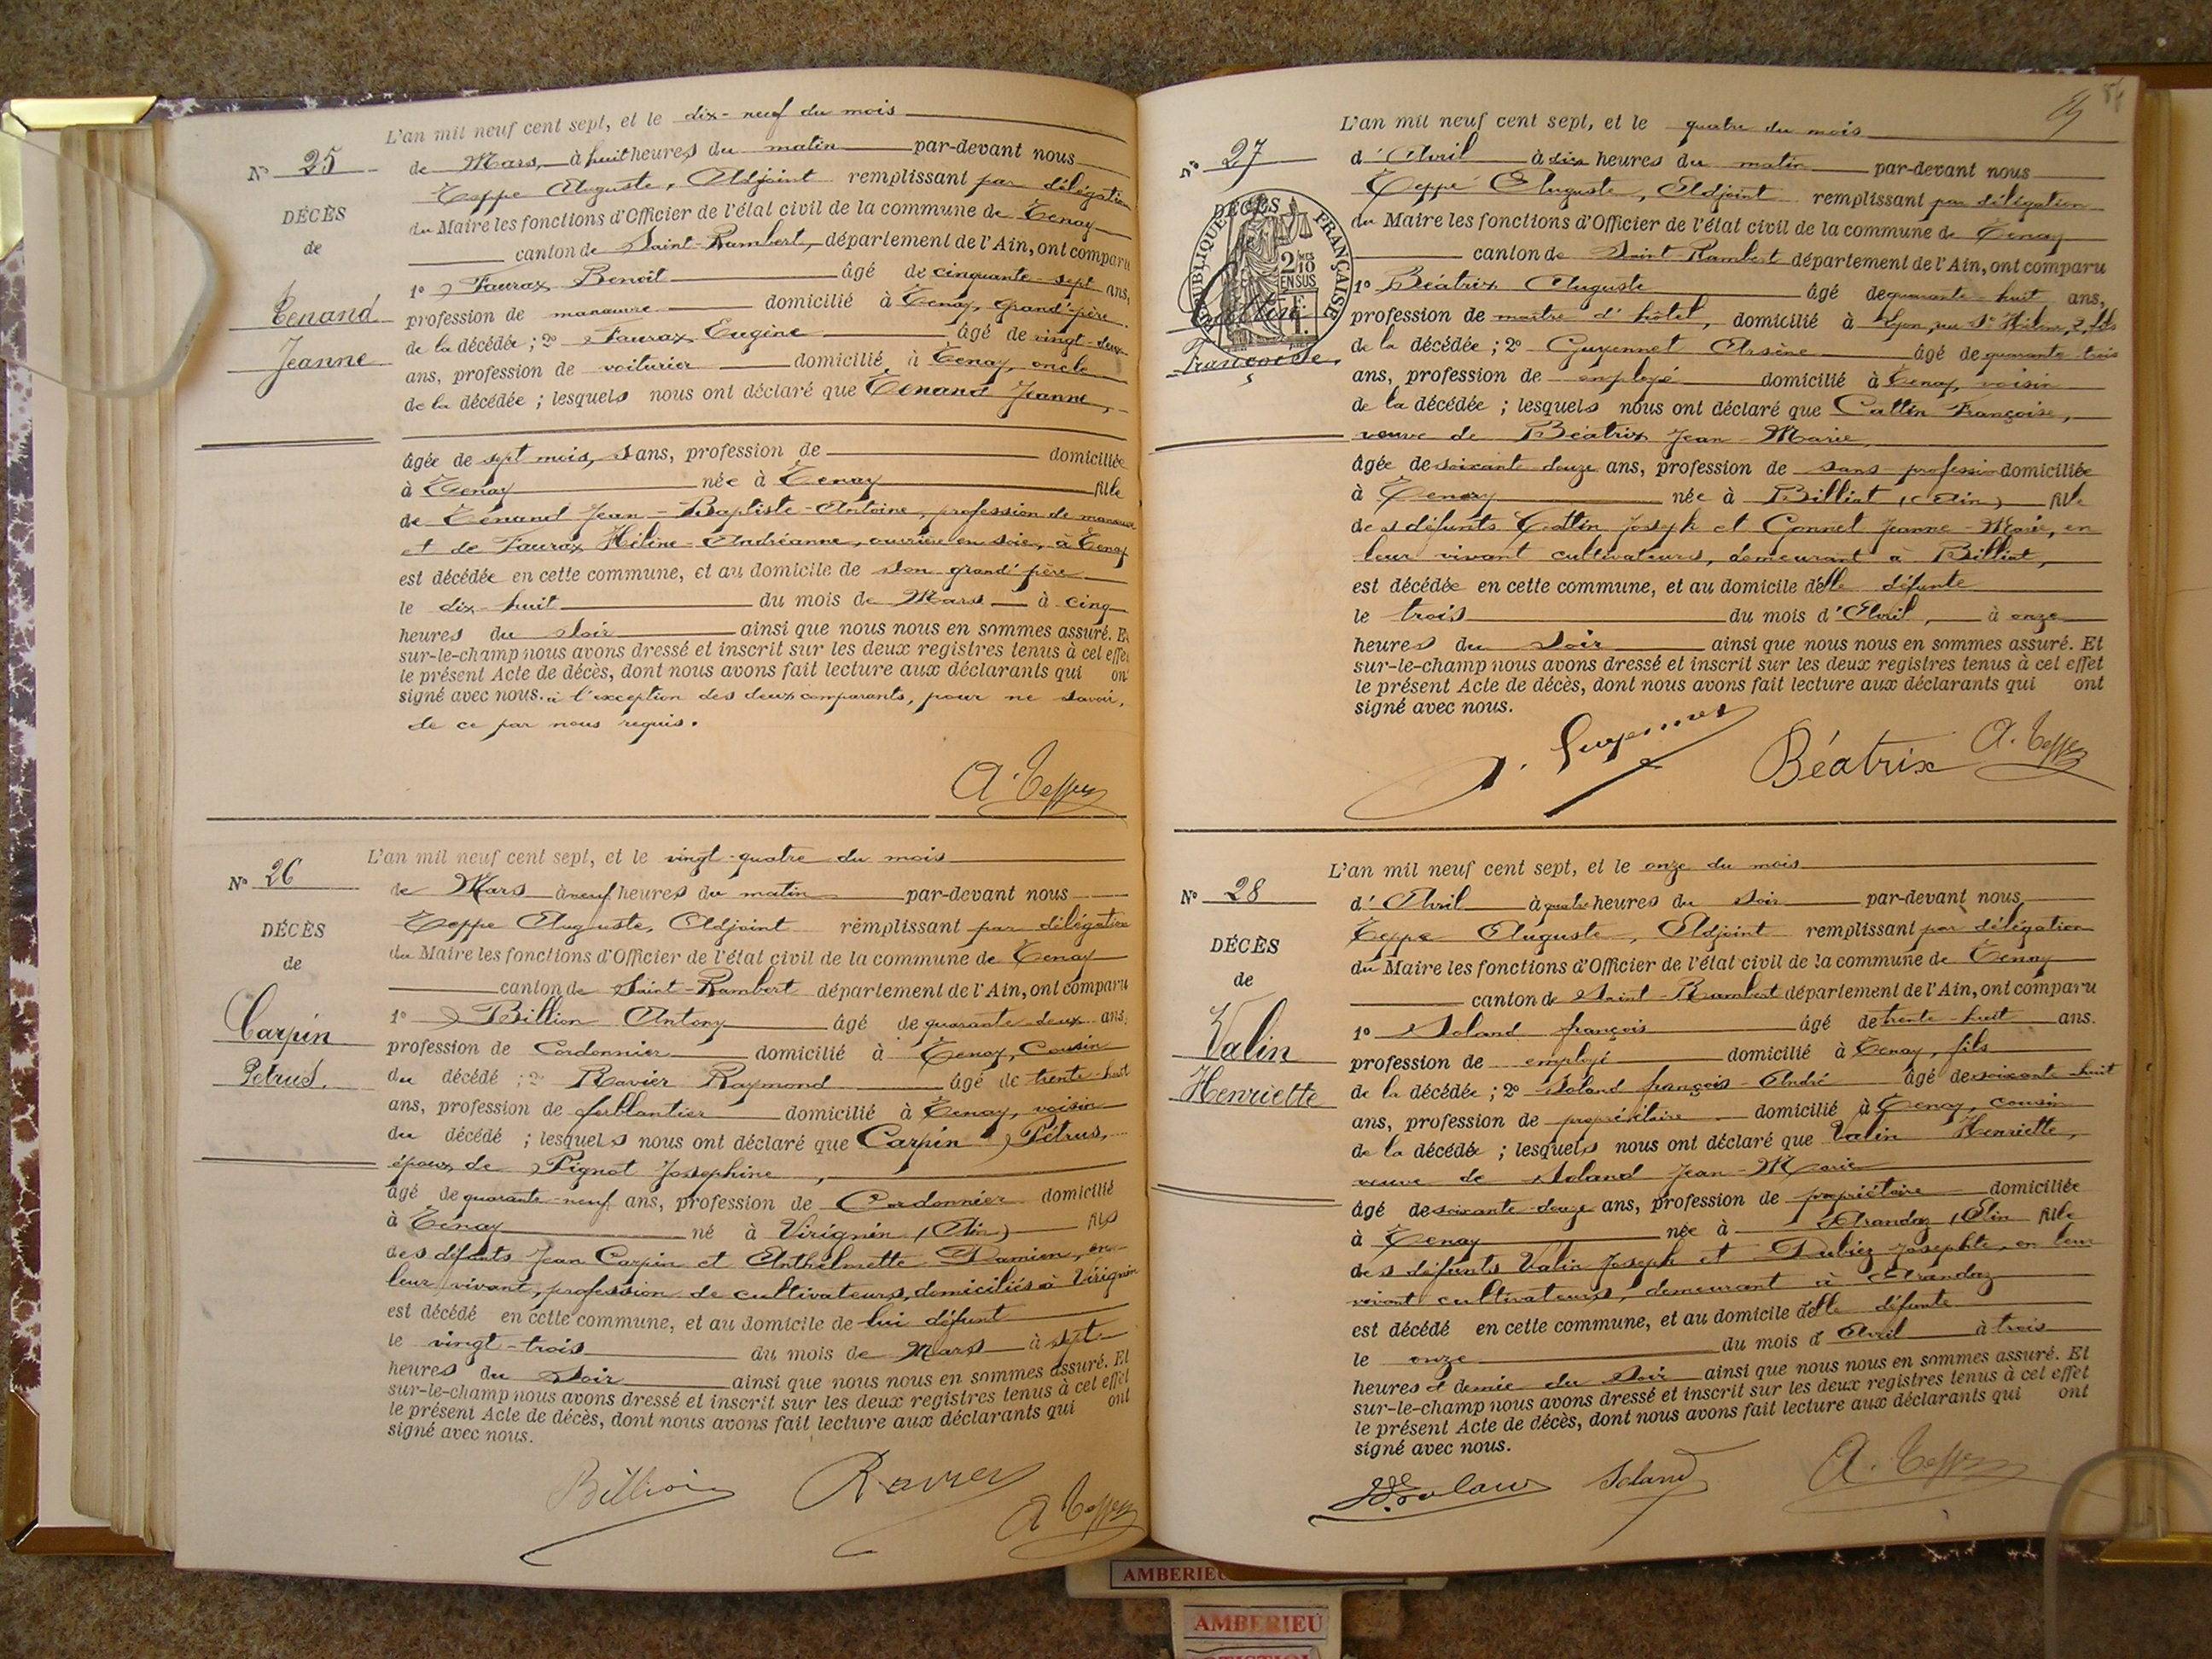 L'an mil neuf cent sept, et le dix-neuf du mois
N° 25
de Mars, à huit heures du matin par-devant nous
Teppe Auguste, Adjoint remplissant par délégation
DÉCÈS
du Maire les fonctions d'Officier de l'état civil de la commune de Tenay
de
canton de Saint-Rambert, département de l'Ain, ont comparu
1° Faurax Benoit âgé de cinquante-sept ans,
Tenand
profession de manœuvre domicilié à Tenay, grand'père
de la décédée ; 2° Faurax Eugène âgé de vingt-deux
Jeanne
ans, profession de voiturier domicilié à Tenay, oncle
de la décédée ; lesquels nous ont déclaré que Tenand Jeanne,
âgée de sept mois, sans, profession de domiciliée
à Tenay née à Tenay fille
de Tenand Jean-Baptiste-Antoine, profession de manœuvre
et de Faurax Hélène-Andréanne, ouvrière en soie, à Tenay
est décédée en cette commune, et au domicile de son grand'père
le dix-huit du mois de Mars à cinq
heures du soir ainsi que nous nous en sommes assuré. Et
sur-le-champ nous avons dressé et inscrit sur les deux registres tenus à cet effet
le présent Acte de décès, dont nous avons fait lecture aux déclarants qui ont
signé avec nous. à l'exception des deux comparants, pour ne savoir,
de ce par nous requis.
A. Teppe
L'an mil neuf cent sept, et le vingt-quatre du mois
N° 26
de Mars à neuf heures du matin par-devant nous
Teppe Auguste, Adjoint remplissant par délégation
DÉCÈS
du Maire les fonctions d'Officier de l'état civil de la commune de Tenay
de
canton de Saint-Rambert département de l'Ain, ont comparu
1° Billion Antony âgé de quarante-deux ans,
Carpin
profession de Cordonnier domicilié à Tenay, Cousin
Petrus.
du décédé ; 2° Ravier Raymond âgé de trente-huit
ans, profession de ferblantier domicilié à Tenay, voisin
du décédé ; lesquels nous ont déclaré que Carpin Pétrus,
époux de Pignot Josephine,
âgé de quarante-neuf ans, profession de Cordonnier domicilié
à Tenay né à Virignin (Ain) fils
des défunts Jean Carpin et Anthelmette Damien, en
leur vivant, profession de cultivateurs, domiciliés à Virignin
est décédé en cette commune, et au domicile de lui défunt
le vingt-trois du mois de Mars à sept
heures du soir ainsi que nous nous en sommes assuré. Et
sur-le-champ nous avons dressé et inscrit sur les deux registres tenus à cet effet
le présent Acte de décès, dont nous avons fait lecture aux déclarants qui ont
signé avec nous.
Billion Ravier
A Teppe
L'an mil neuf cent sept, et le quatre du mois
N° 27
d'Avril à dix heures du matin par-devant nous
Teppe Auguste, Adjoint remplissant par délégation
DÉCÈS
RÉPUBLIQUE FRANÇAISE
2/10 EN SUS
du Maire les fonctions d'Officier de l'état civil de la commune de Tenay
canton de Saint-Rambert département de l'Ain, ont comparu
1° Béatrix Auguste âgé de quarante-huit ans,
Cattin
profession de maître d'hôtel, domicilié à Lyon, rue St Hélène, 2, fils
Françoise
de la décédée ; 2° Guyennet Arsène âgé de quarante-trois
ans, profession de employé domicilié à Tenay, voisin
de la décédée ; lesquels nous ont déclaré que Cattin Françoise,
veuve de Béatrix Jean-Marie,
âgée de soixante-douze ans, profession de sans profession domiciliée
à Tenay née à Billiat (Ain) fille
des défunts Cattin Joseph et Connet Jeanne-Marie, en
leur vivant cultivateurs, demeurant à Billiat,
est décédée en cette commune, et au domicile d'elle défunte
le trois du mois d'Avril, à onze
heures du soir ainsi que nous nous en sommes assuré. Et
sur-le-champ nous avons dressé et inscrit sur les deux registres tenus à cet effet
le présent Acte de décès, dont nous avons fait lecture aux déclarants qui ont
signé avec nous.
Béatrix A. Teppe
L'an mil neuf cent sept, et le onze du mois
N° 28
d'Avril à quatre heures du soir par-devant nous
Teppe Auguste, Adjoint remplissant par délégation
DÉCÈS
du Maire les fonctions d'Officier de l'état civil de la commune de Tenay
de
canton de Saint-Rambert département de l'Ain, ont comparu
1° Soland françois âgé de trente-huit ans.
Valin
profession de employé domicilié à Tenay, fils
Henriette
de la décédée ; 2° Soland françois-André âgé de soixante-huit
ans, profession de propriétaire domicilié à Tenay, cousin
de la décédée ; lesquels nous ont déclaré que Valin Henriette,
veuve de Soland Jean-Marie
âgé de soixante-douze ans, profession de propriétaire domiciliée
à Tenay née à Arandaz (Ain fille
des défunts Valin Joseph et Dubiez Josephte, en leur
vivant cultivateurs, demeurant à Arandaz
est décédé en cette commune, et au domicile d'elle défunte
le onze du mois d'Avril à trois
heures et demie du soir ainsi que nous nous en sommes assuré. Et
sur-le-champ nous avons dressé et inscrit sur les deux registres tenus à cet effet
le présent Acte de décès, dont nous avons fait lecture aux déclarants qui ont
signé avec nous.
Soland A. Teppe
AMBERIEU
AMBERIEU